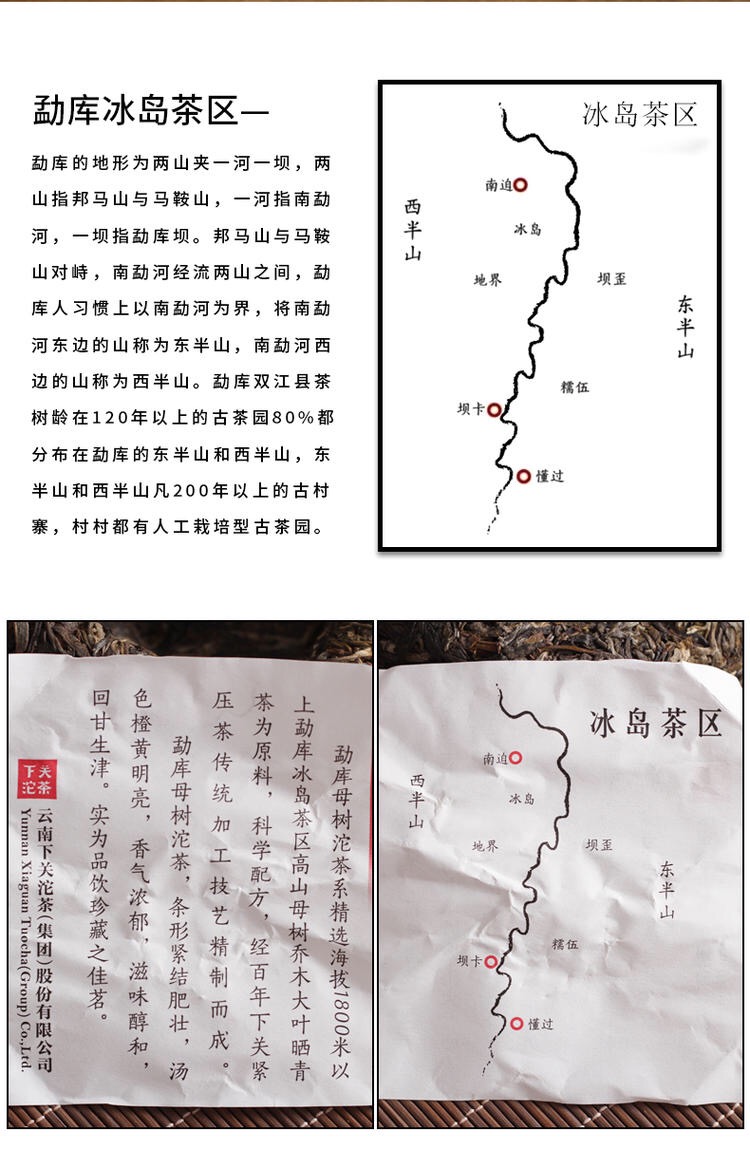 勐库冰岛茶区—
勐库的地形为两山夹一河一坝，两
山指邦马山与马鞍山，一河指南勐
河，一坝指勐库坝。邦马山与马鞍
山对峙，南勐河经流两山之间，勐
库人习惯上以南勐河为界，将南勐
河东边的山称为东半山，南勐河西
边的山称为西半山。勐库双江县茶
树龄在120年以上的古茶园80%都
分布在勐库的东半山和西半山，东
半山和西半山凡200年以上的古村
寨，村村都有人工栽培型古茶园。
冰岛茶区
南迫
西半山
冰岛
地界
坝歪
东半山
糯伍
坝卡
懂过
勐库母树沱茶系精选海拔1800米以
上勐库冰岛茶区高山母树乔木大叶晒青
茶为原料，科学配方，经百年下关紧
压茶传统加工技艺精制而成。
勐库母树沱茶，条形紧结肥壮，汤
色橙黄明亮，香气浓郁，滋味醇和，
回甘生津。实为品饮珍藏之佳茗。
下关沱茶
云南下关沱茶(集团)股份有限公司
Yunnan Xiaguan Tuocha(Group) Co.,Ltd.
冰岛茶区
南迫
西半山
冰岛
地界
坝歪
东半山
糯伍
坝卡
懂过